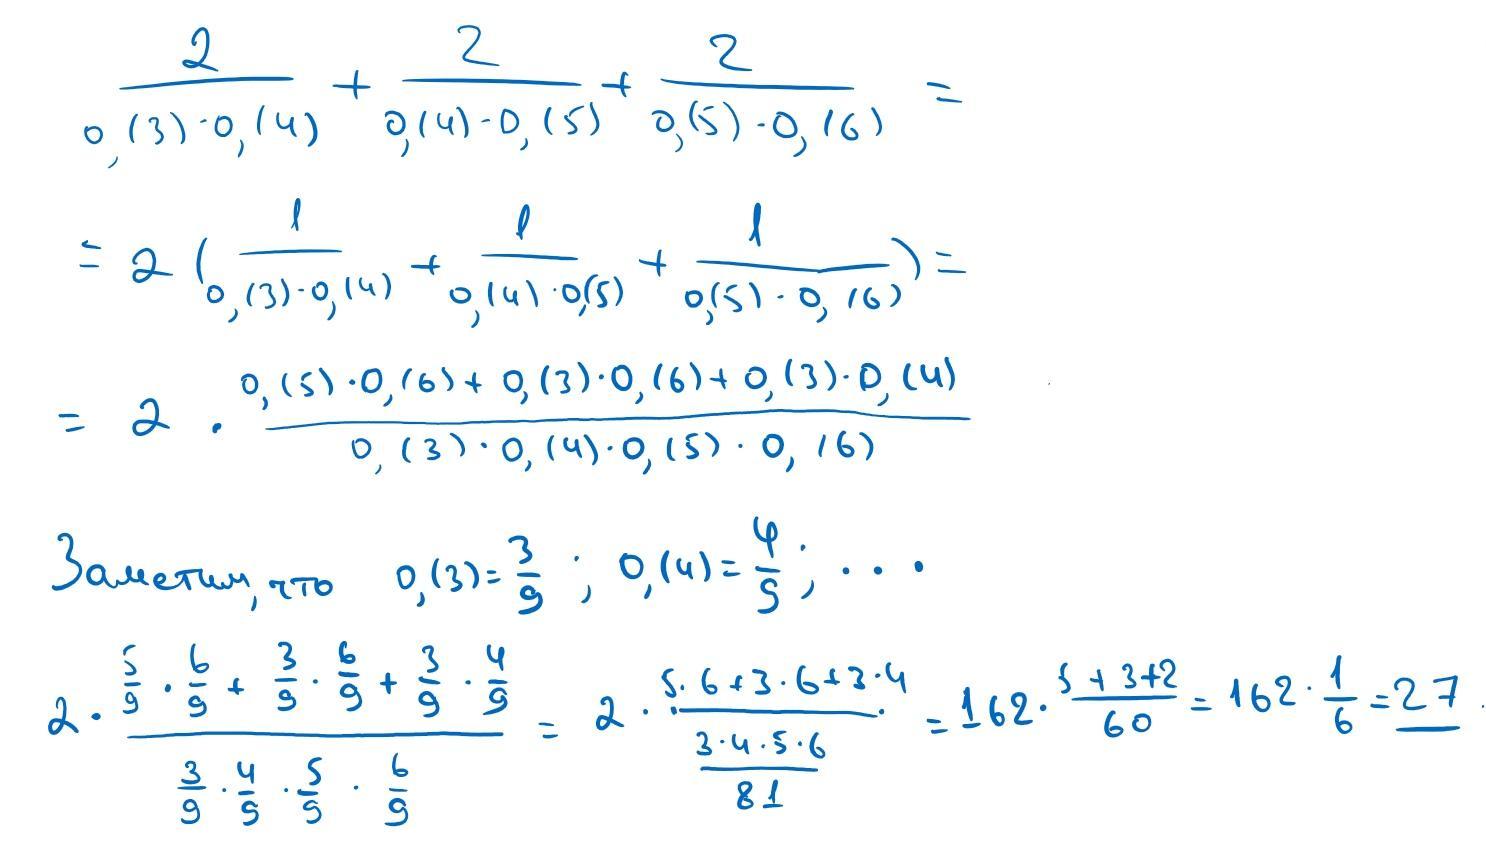 2/(0,(3)·0,(4)) + 2/(0,(4)·0,(5)) + 2/(0,(5)·0,(6)) =
= 2 (1/(0,(3)·0,(4)) + 1/(0,(4)·0,(5)) + 1/(0,(5)·0,(6))) =
= 2 · (0,(5)·0,(6) + 0,(3)·0,(6) + 0,(3)·0,(4))/(0,(3)·0,(4)·0,(5)·0,(6))
Заметим, что 0,(3) = 3/9 ; 0,(4) = 4/9 ; ...
2 · (5/9 · 6/9 + 3/9 · 6/9 + 3/9 · 4/9)/(3/9 · 4/9 · 5/9 · 6/9) = 2 · (5·6 + 3·6 + 3·4)/((3·4·5·6)/81) = 162 · (5+3+2)/60 = 162 · 1/6 = 27